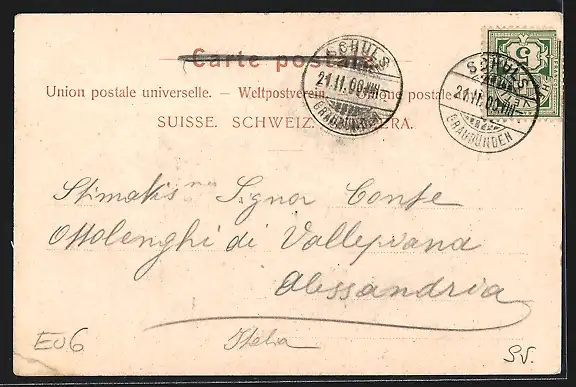 Carte postale
Union postale universelle. — Weltpostverein. postale
SUISSE. SCHWEIZ.
SCHULS
21.II.00
GRAUBÜNDEN
SCHULS
21.II.00
GRAUBÜNDEN
5
Signor Conte
Ottolenghi di Vallepiana
Alessandria
EU6
SV.